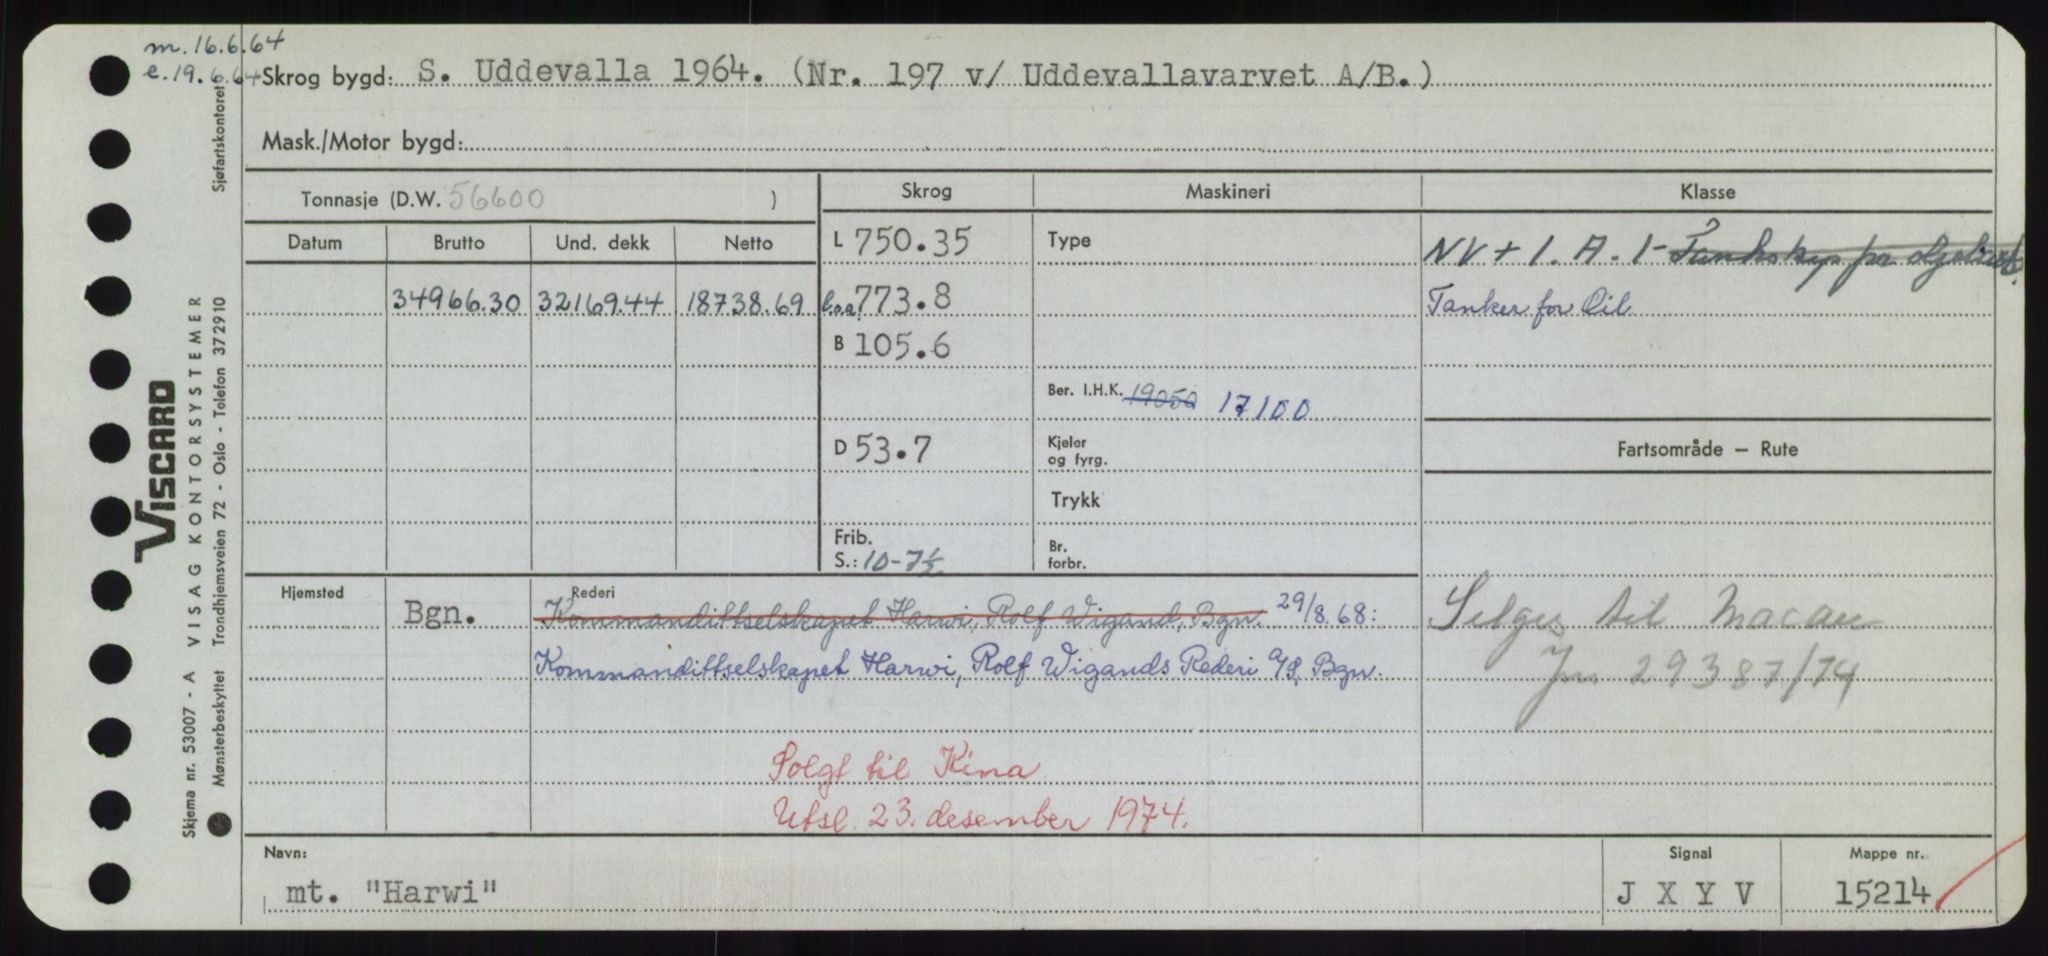 m. 16.6.64
e. 19.6.64
Skrog bygd: S. Uddevalla 1964. (Nr. 197 v/ Uddevallavarvet A/B.)
Mask./Motor bygd:
Tonnasje (D.W. 56600 )
Skrog Maskineri Klasse
Datum Brutto Und. dekk Netto
L 750.35 Type NV + 1. A. 1 - Tankskip for oljelast.
34966.30 32169.44 18738.69 l.o.a. 773.8 Tanker for Oil
B 105.6
Ber. I.H.K. 19050 17100
D 53.7 Kjeler og fyrg. Fartsområde — Rute
Trykk
Frib. S.: 10-7½ Br. forbr.
Hjemsted Bgn. Rederi
Kommandittselskapet Harwi, Rolf Wigand, Bgn. 29/8.68:
Kommandittselskapet Harwi, Rolf Wigands Rederi A/S, Bgn.
Selges til Macau
Jnr 29387/74
Solgt til Kina
Utsl. 23. desember 1974.
Navn: Signal Mappe nr.
mt. "Harwi" J X Y V 15214
VISCARD
Skjema nr. 53007 - A VISAG KONTORSYSTEMER
Mønsterbeskyttet Trondhjemsveien 72 - Oslo - Telefon 372910 Sjøfartskontoret